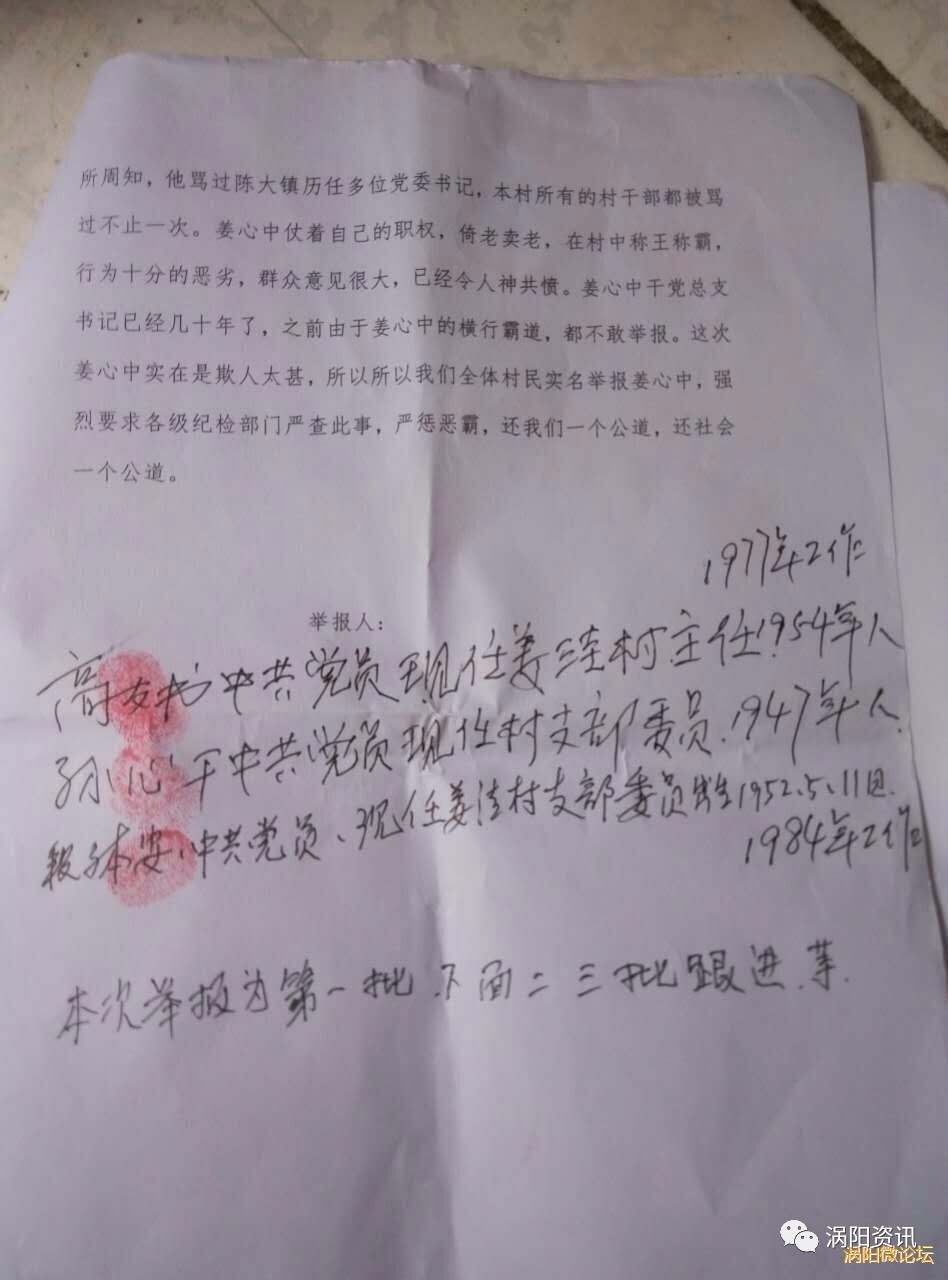 所周知，他骂过陈大镇历任多位党委书记，本村所有的村干部都被骂
过不止一次。姜心中仗着自己的职权，倚老卖老，在村中称王称霸，
行为十分的恶劣，群众意见很大，已经令人神共愤。姜心中干党总支
书记已经几十年了，之前由于姜心中的横行霸道，都不敢举报。这次
姜心中实在是欺人太甚，所以所以我们全体村民实名举报姜心中，强
烈要求各级纪检部门严查此事，严惩恶霸，还我们一个公道，还社会
一个公道。
1977年工作
举报人：
高友 中共党员现任姜洼村主任1954年人
孙心 中共党员现任村支部委员.1947年人.
中共党员、现任姜洼村支部委员出生1952.5.11日.
1984年工作
本次举报为第一批.下面二三批跟进.
涡阳资讯
涡阳微论坛